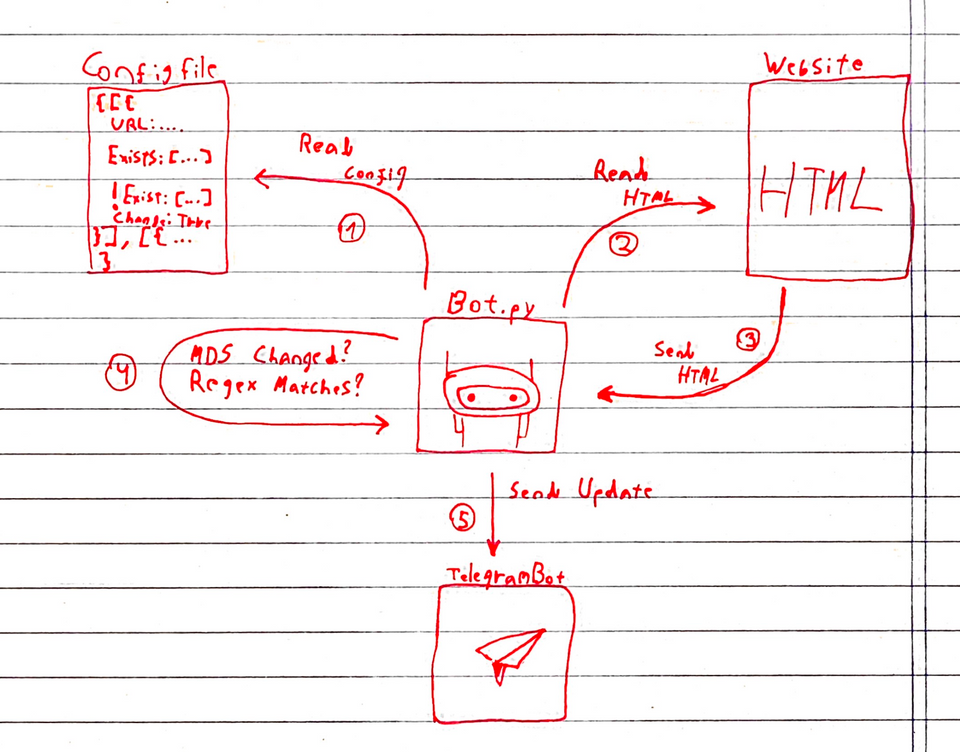 Configfile
{[{
URL:....
Exists:[...]
!Exist:[...]
Change:True
}],[{...
}
Website
HTML
Read
Config
1
Read
HTML
2
Bot.py
3
Send
HTML
4
MD5 Changed?
Regex Matches?
Send Update
5
TelegramBot